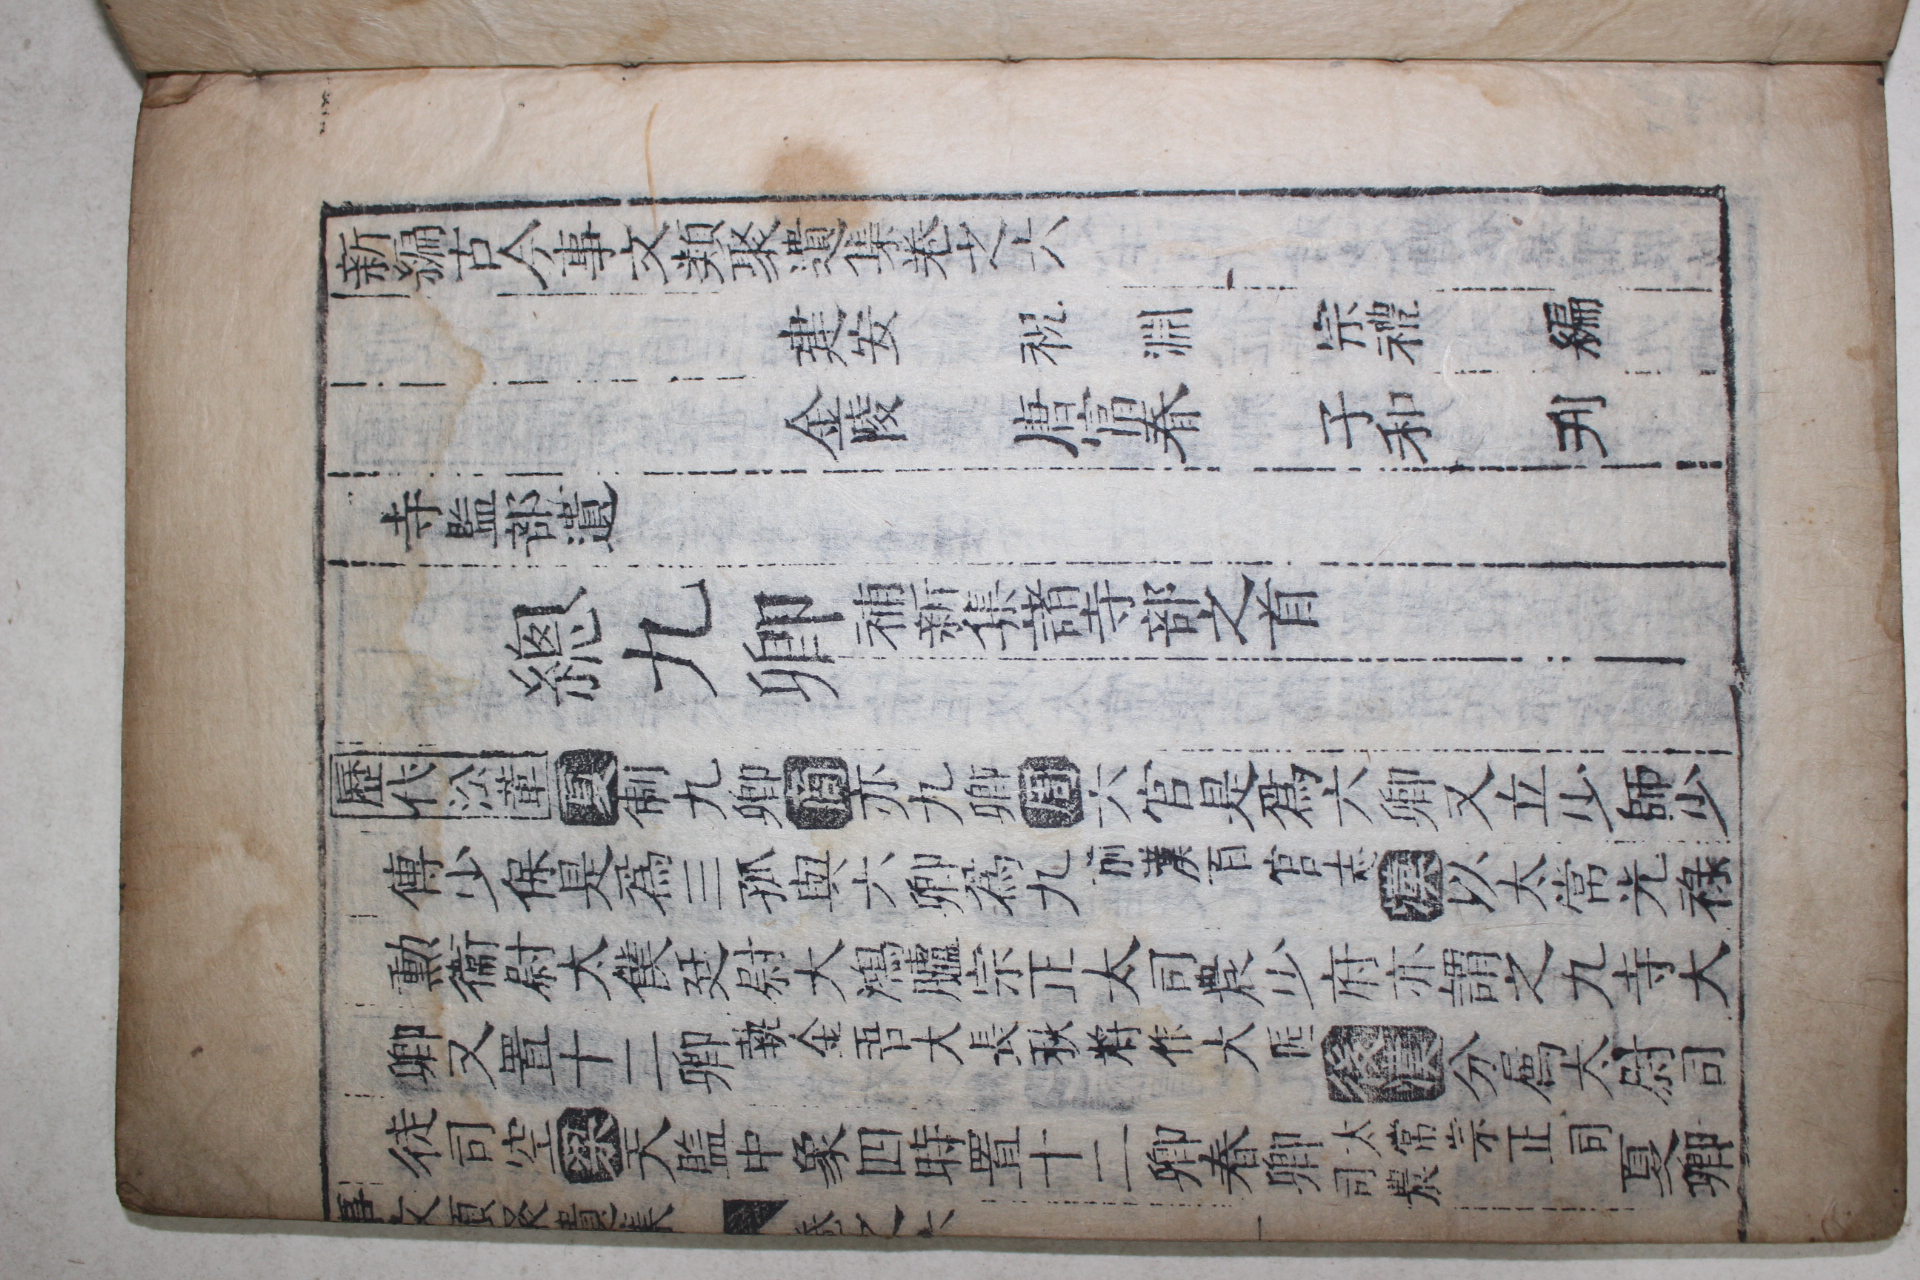 新編古今事文類聚遺集卷之六
建安 祝 淵 宗禮 編
金陵 唐富春 子和 刋
寺監部遺
總九卿 補新集諸寺部之首
歷代沿革 夏制九卿 商亦九卿 周六官是爲六卿又立少師少
傅少保是爲三孤與六卿爲九 前漢百官志 漢以太常光祿
勲衞尉太僕廷尉大鴻臚宗正大司農少府亦謂之九寺大
卿又置十二卿 執金吾大長秋將作大匠 後漢分屬太尉司
徒司空 梁天監中象四時置十二卿春卿 太常宗正司司農 夏卿
事文類聚遺集 卷之六 一